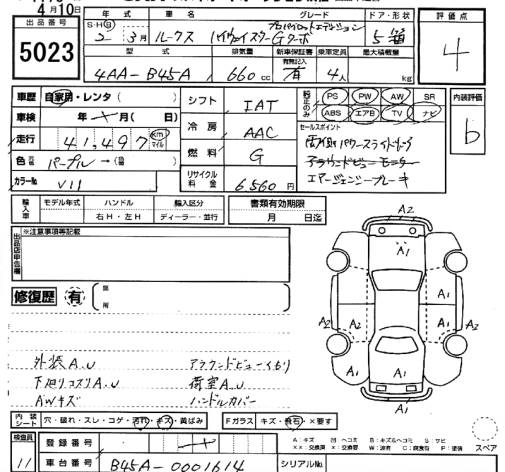 4月10日
出品番号
5023
年式 車名 グレード ドア・形状
S・H・R
2年 3月 ルークス ハイウェイスター Gターボ プロパイロットエディション 5
型式 排気量 新車保証書 有無記入 乗車定員 最大積載量
4AA-B45A 660cc 有 4人 kg
評価点
4
車歴 自家用・レンタ ( )
車検 年 月( 日)
走行 41,497 km マイル
色 パープル→(
カラーNo V11
シフト IAT
冷房 AAC
燃料 G
リサイクル料金 6,560円
純正のみ
PS PW AW SR
ABS エアB TV ナビ
内装評価
b
セールスポイント
両側パワースライドドア
アラウンドビューモニター
エマージェンシーブレーキ
輸入車 モデル年式 ハンドル 輸入区分
右H・左H ディーラー・並行
書類有効期限
月 日迄
出品店申告欄
※注意事項等記載
修復歴 有 箇所
A2
A1
A1
A1
A2
A2
A1
A1
A1
A2
外装A.U アラウンドビューくもり
下廻りコスリA.U 荷室A.U
AWキズ ハンドルカバー
内装シート 穴・破れ・スレ・コゲ・汚れ・キズ・黄ばみ
Fガラス キズ・飛石・×要す
検査員 11
登録番号
車台番号 B45A-0001614
シリアルNo.
A:キズ M:ヘコミ B:キズ&ヘコミ S:サビ
××:交換済 ×:要交換 W:波 C:腐食 P:塗装
スペア